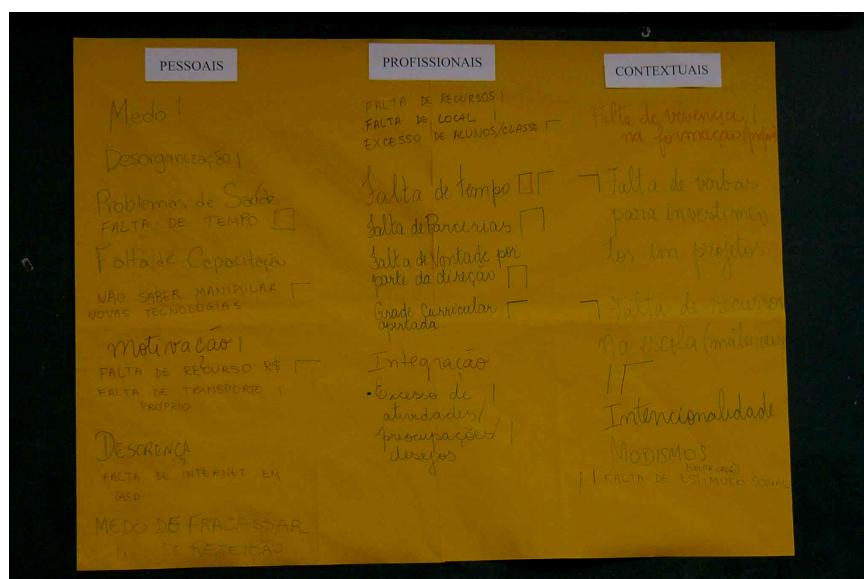 PESSOAIS
Medo
Desorganização
Problemas de Saúde
FALTA DE TEMPO
Falta de Capacitação
NÃO SABER MANIPULAR
NOVAS TECNOLOGIAS
Motivação
FALTA DE RECURSO R$
FALTA DE TRANSPORTE
PRÓPRIO
DESCRENÇA
FALTA DE INTERNET EM
CASA
MEDO DE FRACASSAR
DE REJEIÇÃO
PROFISSIONAIS
FALTA DE RECURSOS
FALTA DE LOCAL
EXCESSO DE ALUNOS/CLASSE
Falta de tempo
Falta de Parcerias
Falta de Vontade por
parte da direção
Grade Curricular
apertada
Integração
• Excesso de
atividades/
preocupações/
desejos
CONTEXTUAIS
Falta de vivência
na formação
Falta de verbas
para investimen
tos em projetos
Falta de recursos
na escola (materiais)
Intencionalidade
MODISMOS
FALTA DE ESTÍMULO SOCIAL